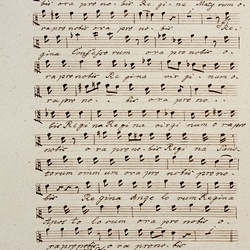 ora pro nobis Regina Matyrum o
ra pro nobis ora pro nobis Re
gina Confessorum ora pro nobis o
ra pro nobis Regina virginum o
ra pro no bis ora pro no
bis Regina Regina virginum ora pro
nobis ora pro nobis Regina Sanc
torum omnium ora pro nobis pro no
bis Regina Angelorum Regina
Apostolorum ora pro nobis o
ra pro nobis ora pro nobis